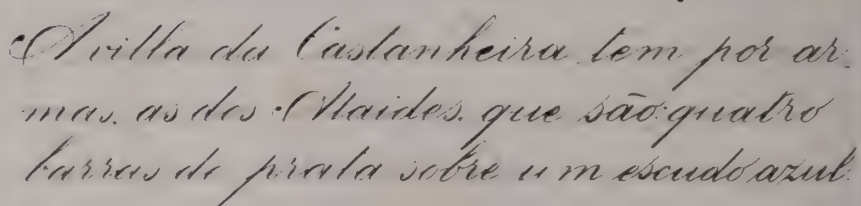 A villa da Castanheira tem por ar-
mas, as dos Ataides, que são quatro
barras de prata sobre um escudo azul.